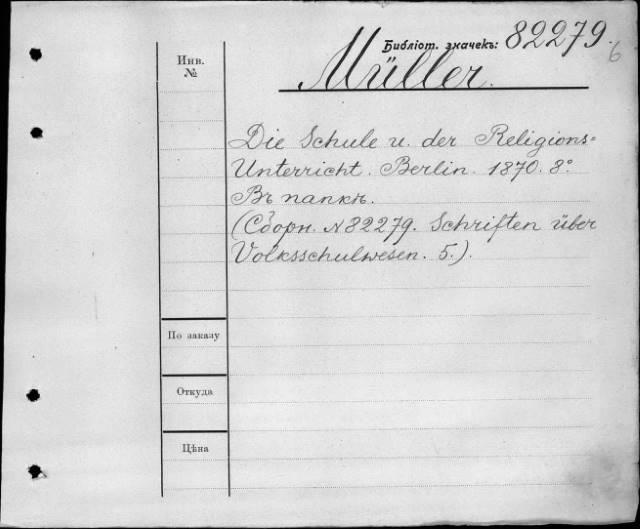 Библіот. значекъ: 82279.
6
Инв.
№
Müller.
Die Schule u. der Religions=
Unterricht. Berlin. 1870. 8°.
Въ папкѣ.
(Сборн. №82279. Schriften über
Volksschulwesen. 5.).
По заказу
Откуда
Цѣна